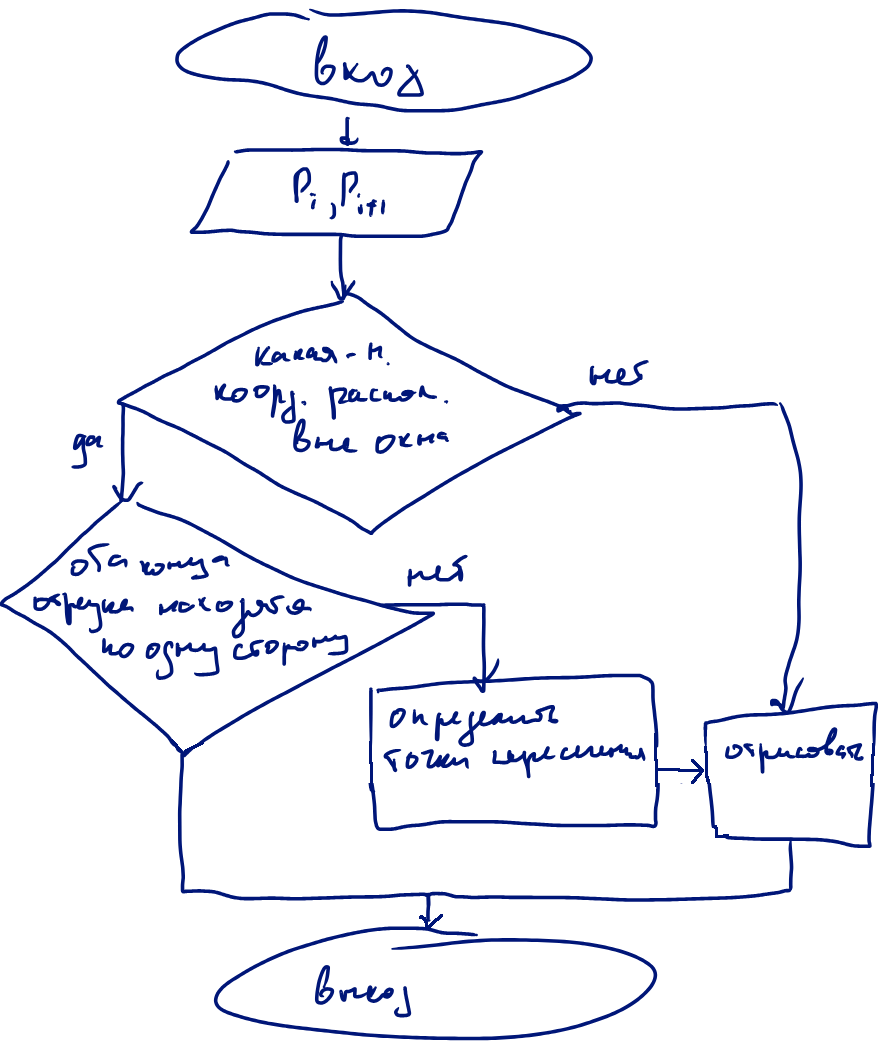 вход
Pi, Pi+1
какая-н.
коорд. распол.
вне окна
нет
да
оба конца
отрезка находятся
по одну сторону
нет
определить
точки пересечения
отрисовать
выход